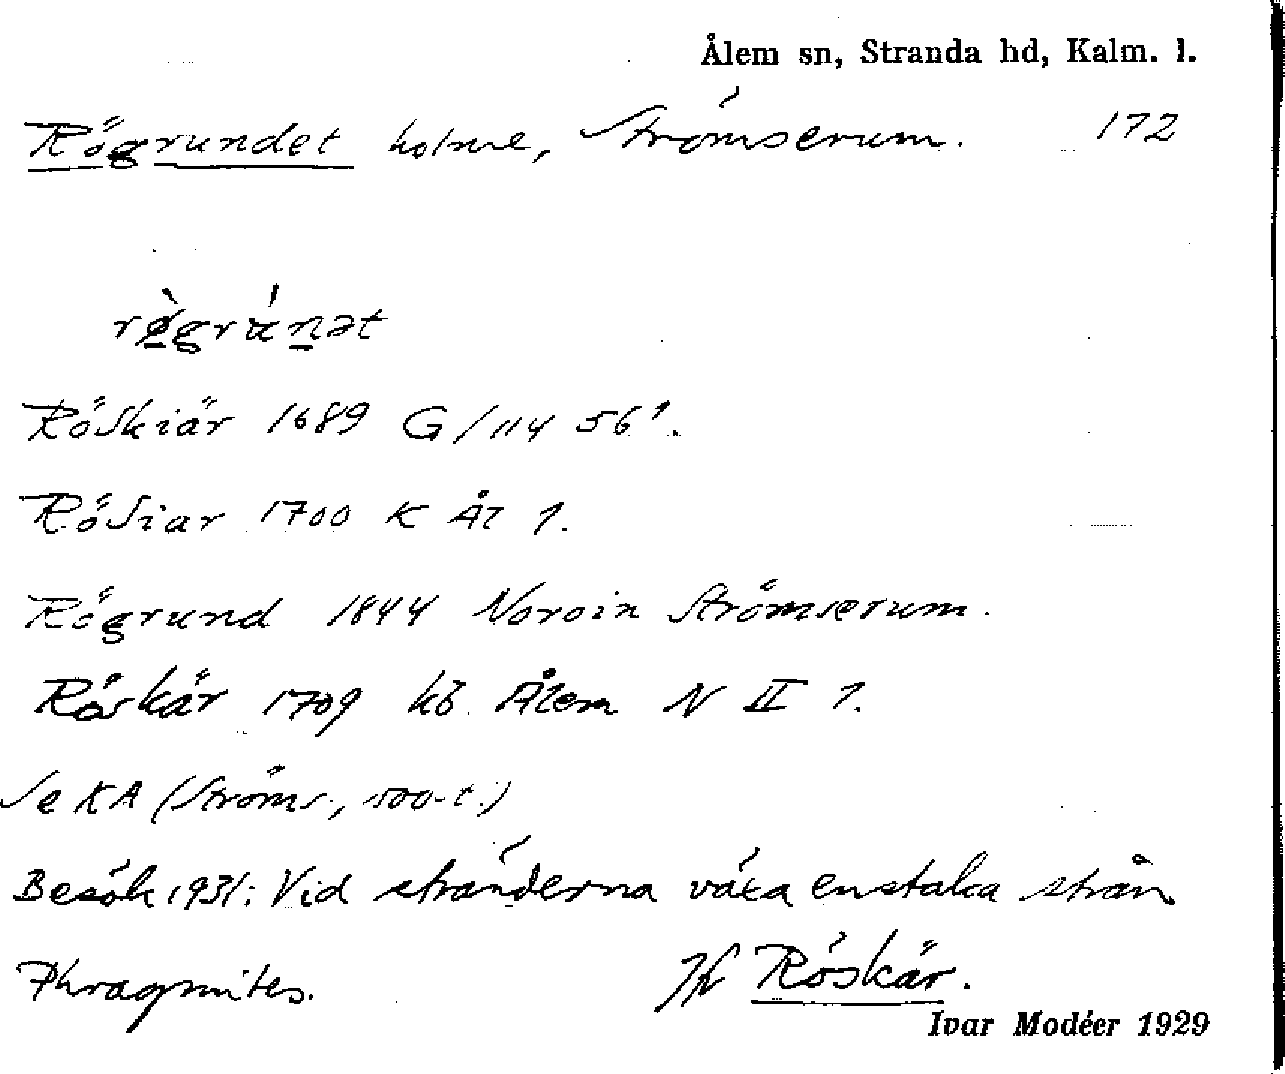 Ålem sn, Stranda hd, Kalm. l.
Rögrundet holme, Strömserum. 172
Röskiär 1689 G/114 56¹.
Rösiar 1700 K Ål 1.
Rögrund 1844 Noroin Strömserum.
Röskär 1709 kb Ålem N II 1.
Se KA (Ströms., 500-t.)
Besök 1931: Vid stränderna växa enstaka strån
Phragmites. Jfr Röskär.
Ivar Modéer 1929